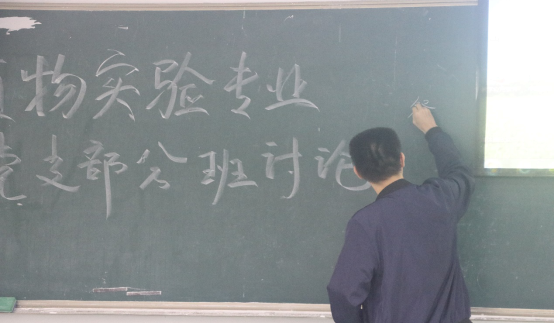 物实验专业
党支部分班讨论